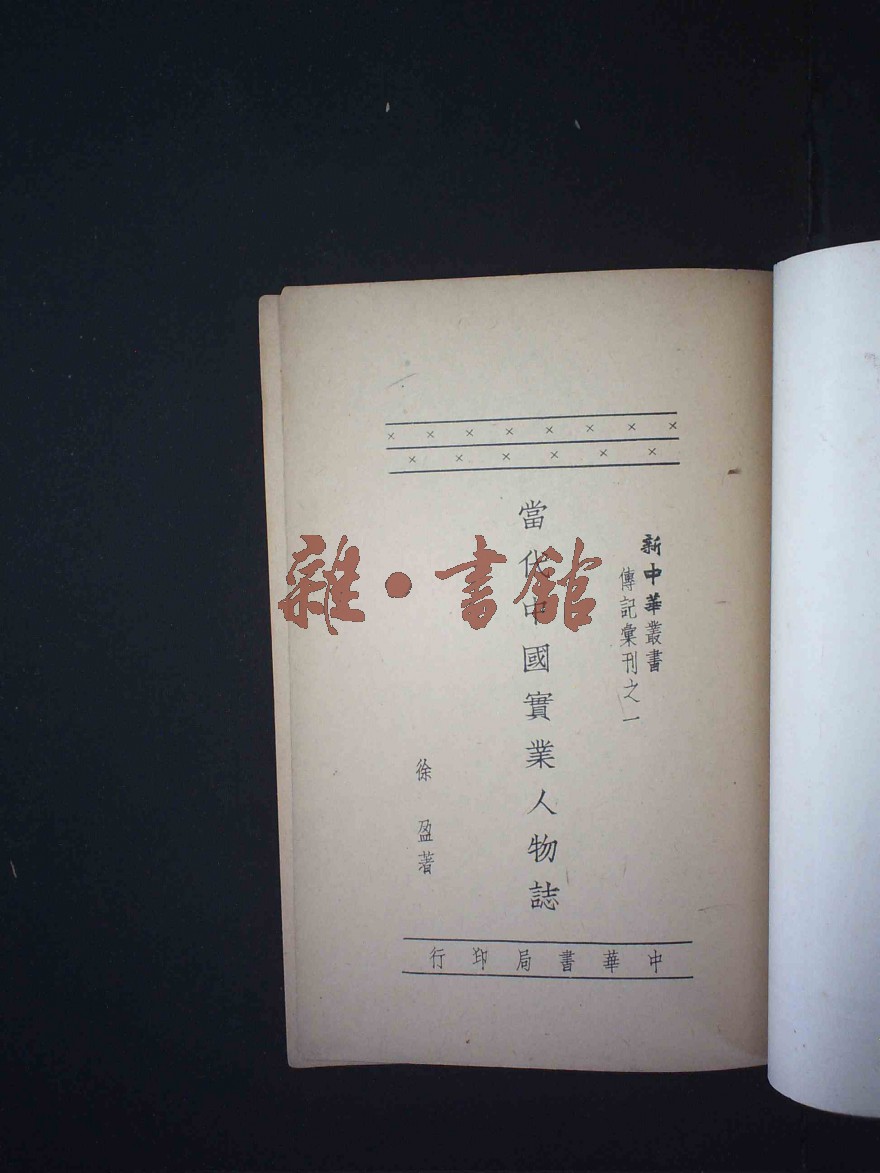 新中華叢書
傳記彙刊之一
當代中國實業人物誌
徐盈著
中華書局印行
雜·書館